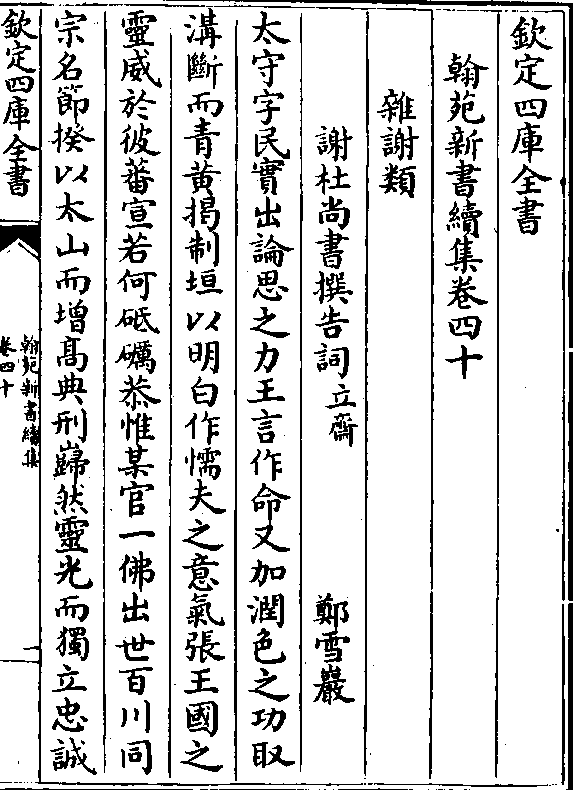 欽定四庫全書
翰苑新書續集卷四十
雜謝類
謝杜尚書撰告詞立齋 鄭雪巖
太守字民實出論思之力王言作命又加潤色之功取
溝斷而青黃揭制垣以明白作懦夫之意氣張王國之
靈威於彼蕃宣若何砥礪恭惟某官一佛出世百川同
宗名節揆以太山而增髙典刑巋然靈光而獨立忠誠
欽定四庫全書
翰苑新書續集
卷四十
一